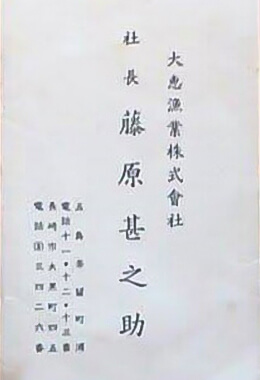 大惠漁業株式會社
社長 藤原甚之助
五島奈留町浦
電話十一・十二・十三番
長崎市大黒町四五
電話③三四二六番